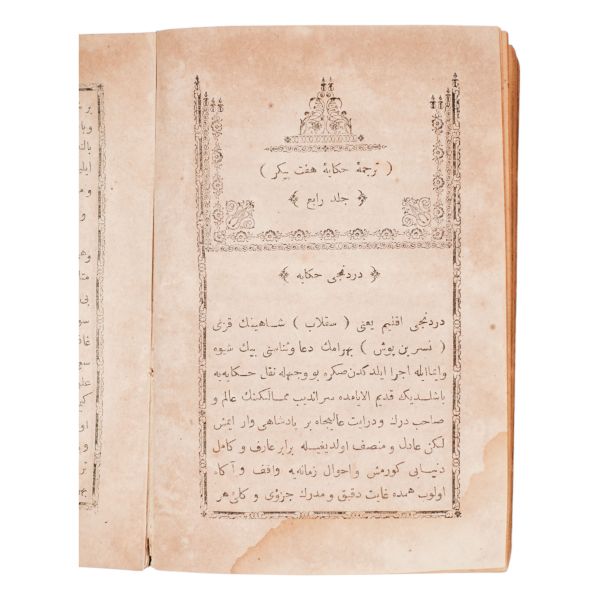 ( ترجمهٔ حكايهٔ هفت پيكر )
جلد رابع
دردنجی حكايه
دردنجی اقليم يعنی ( سقلاب ) شاهينك قزی
( نسرين پوش ) بهرامك دعا وثناسنی بيك شيوه
واتمايله اجرا ايلدكدن صكره بو وجهله نقل حكايه يه
باشلديكه قديم الايامده سرانديب ممالكنك عالم و
صاحب درك ودرايت عاليجاه بر پادشاهی وار ايمش
لكن عادل و منصف اولديغيله برابر عارف و كامل
دنيايی كورمش و احوال زمانه يه واقف و آكاه
اولوب همده غايت دقيق و مدرك جزؤی و كلئ هر